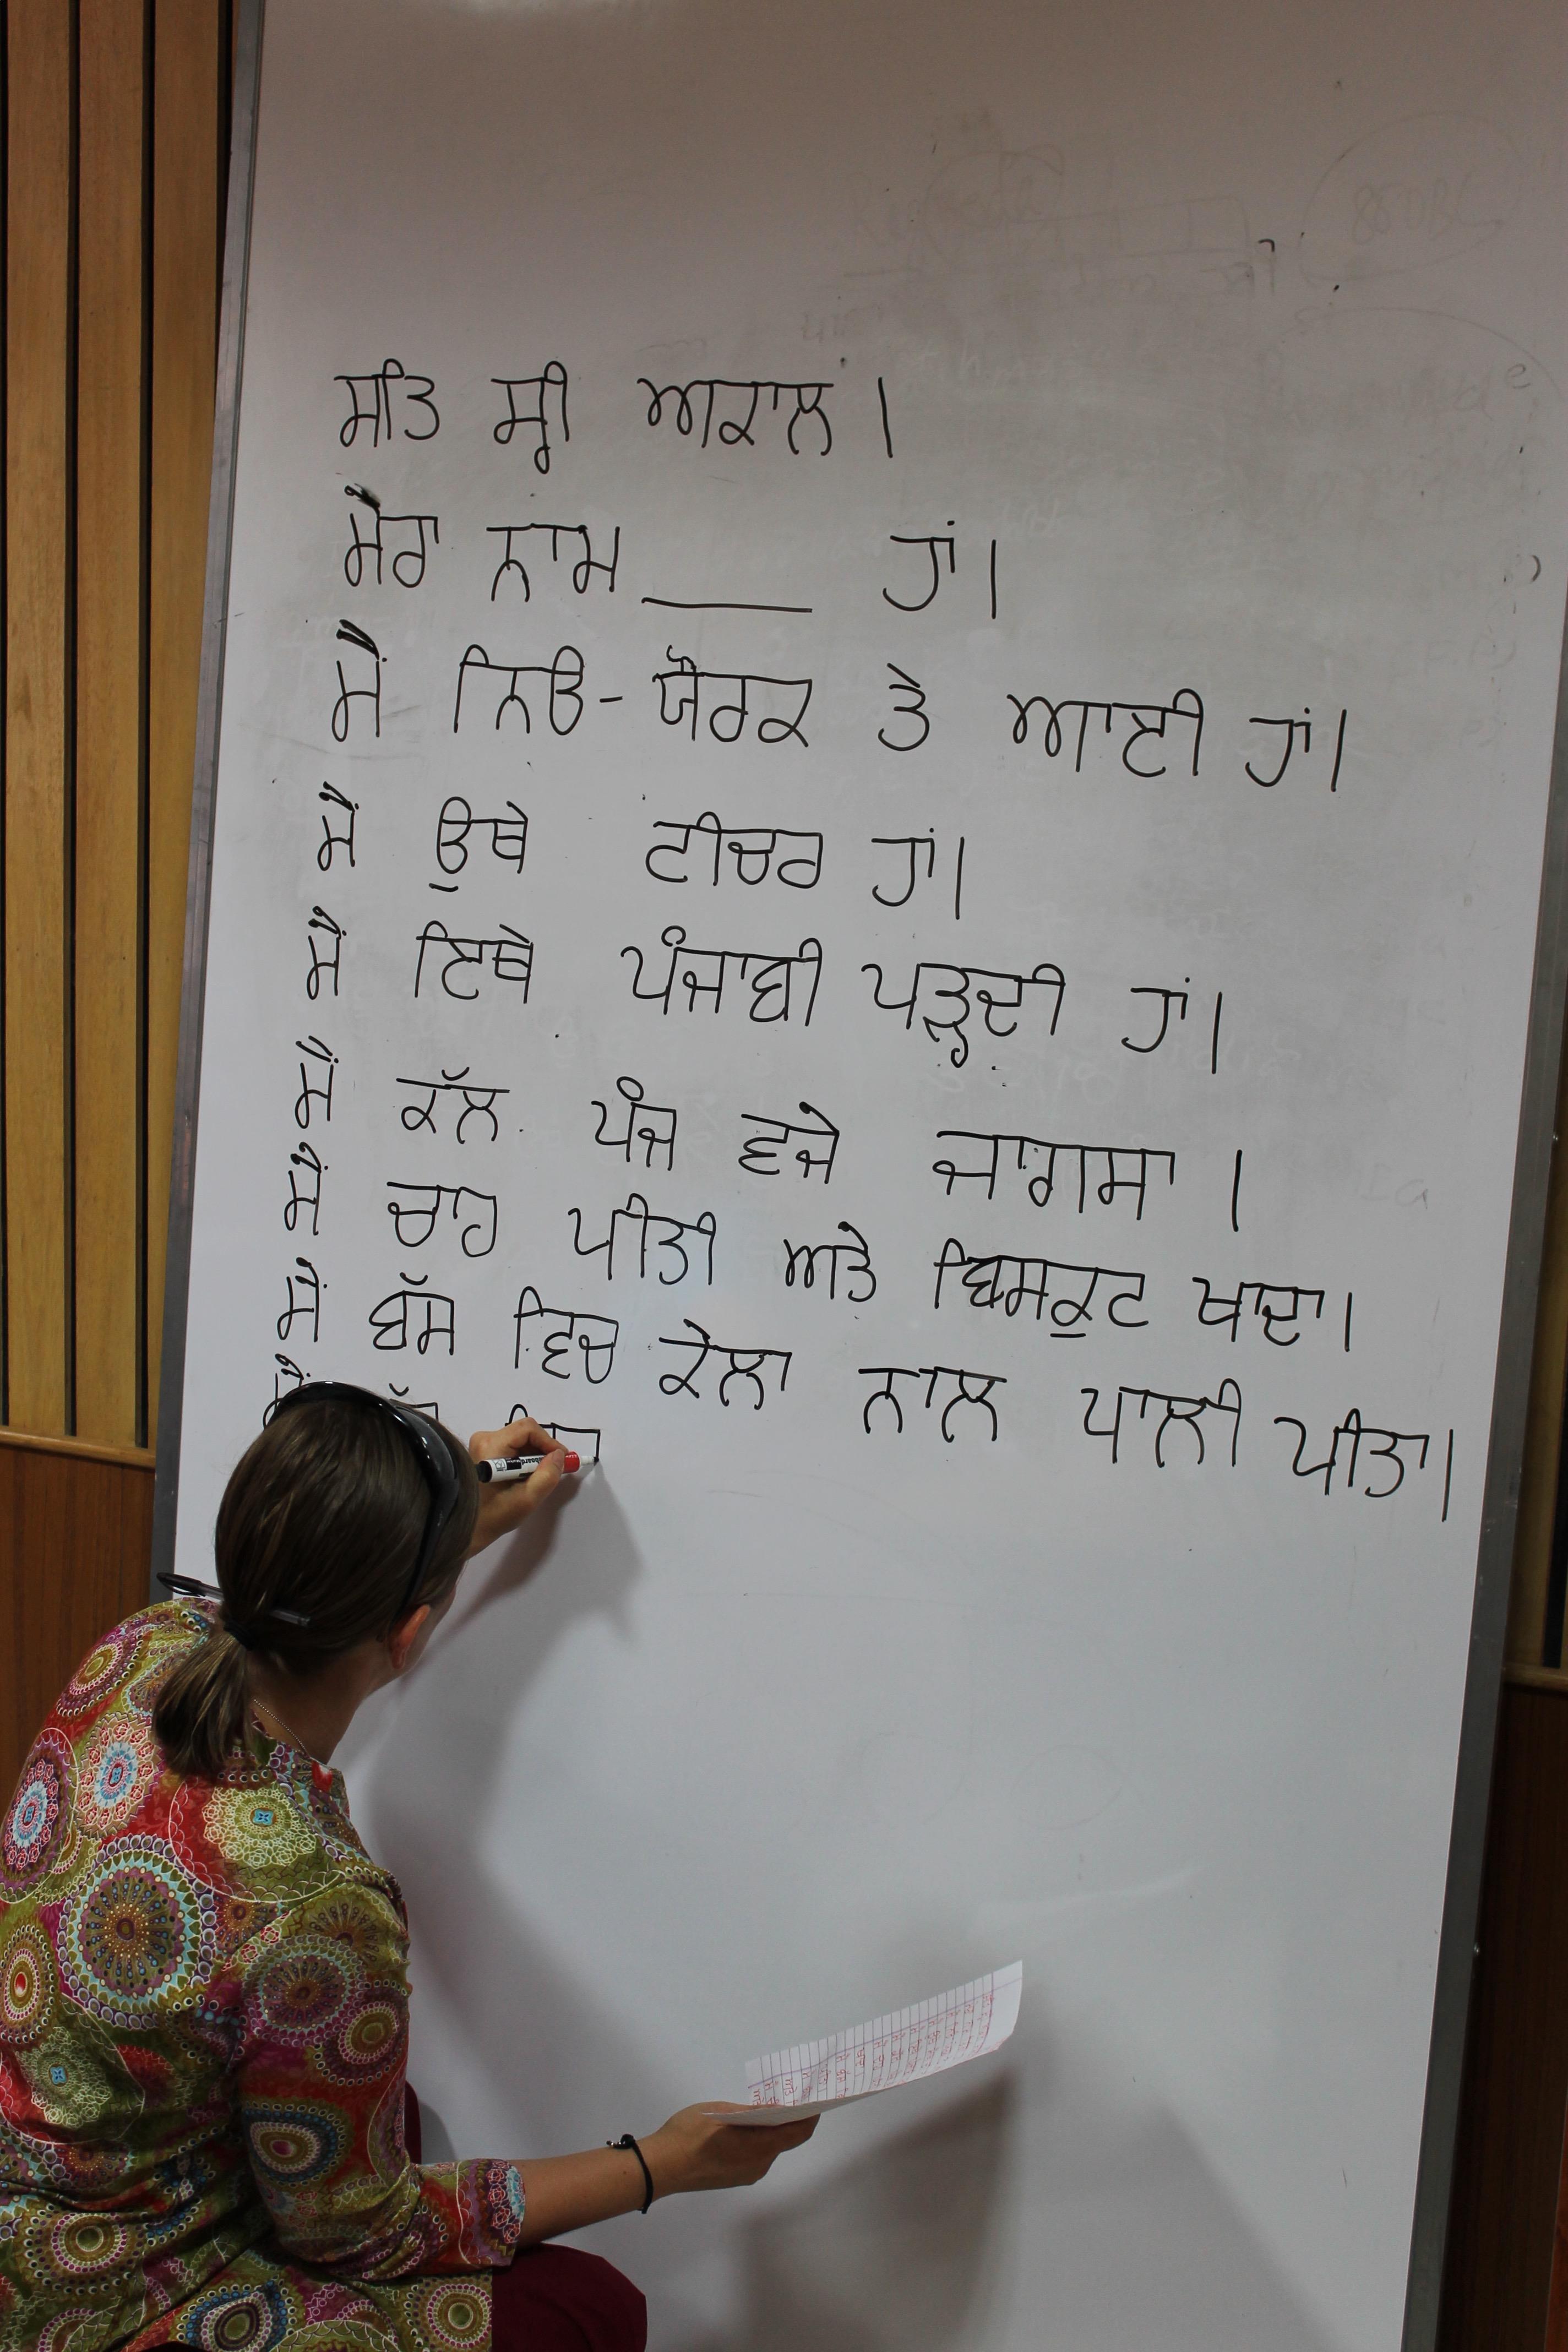 ਸਤਿ ਸ੍ਰੀ ਅਕਾਲ।
ਮੇਰਾ ਨਾਮ ____ ਹਾਂ।
ਮੈਂ ਨਿਓ-ਯੋਰਕ ਤੇ ਆਈ ਹਾਂ।
ਮੈਂ ਉਥੇ ਟੀਚਰ ਹਾਂ।
ਮੈਂ ਇਥੇ ਪੰਜਾਬੀ ਪੜ੍ਹਦੀ ਹਾਂ।
ਮੈਂ ਕੱਲ ਪੰਜ ਵਜੇ ਜਾਗਸਾ।
ਮੈਂ ਚਾਹ ਪੀਤੀ ਅਤੇ ਬਿਸਕੁਟ ਖਾਦਾ।
ਮੈਂ ਬੱਸ ਵਿਚ ਕੇਲਾ ਨਾਲ ਪਾਲੀ ਪੀਤਾ।
ਮੈਂ